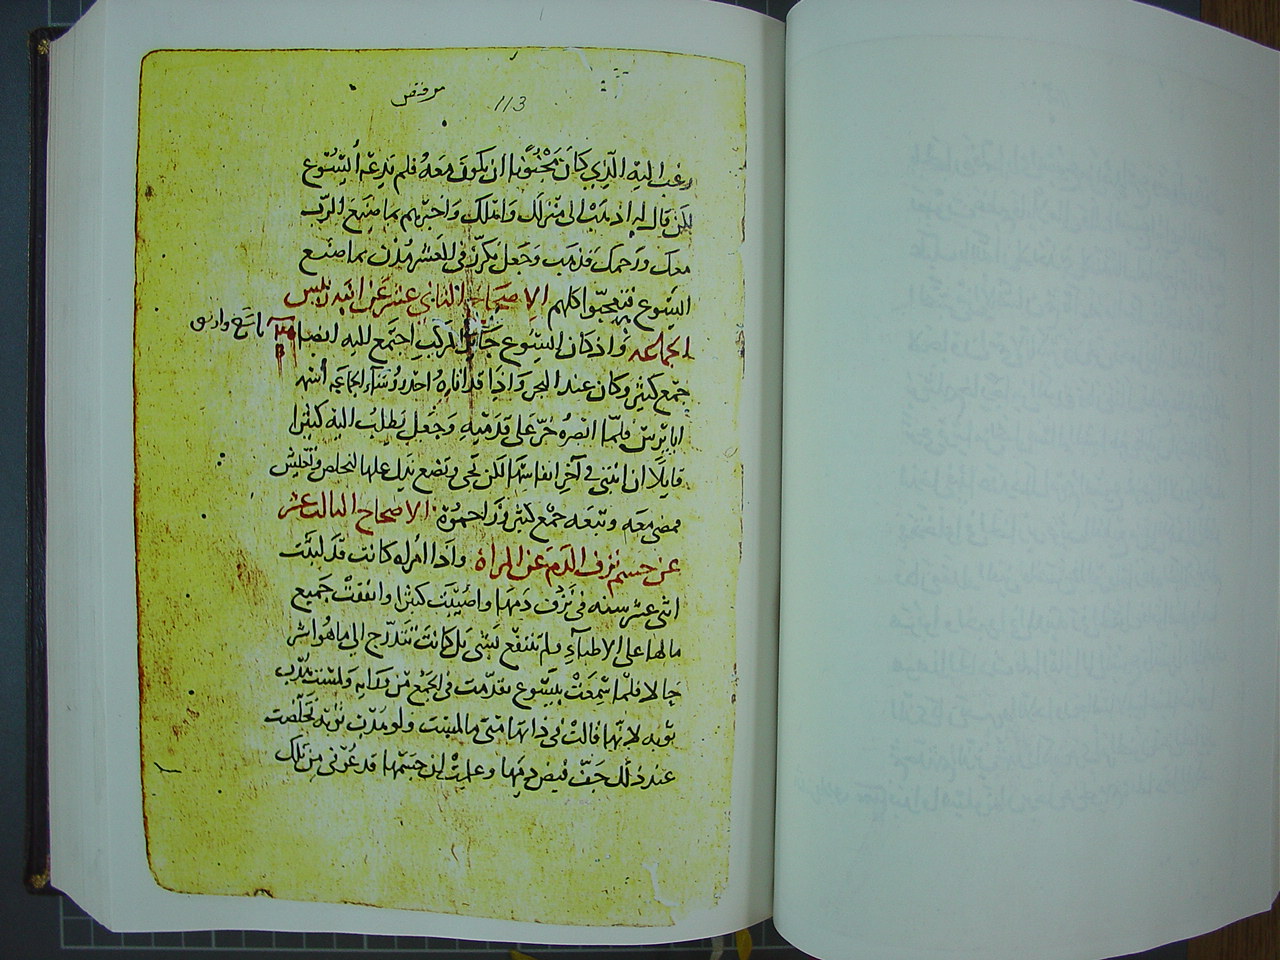 مرقص
113
رغب اليه الذي كَان مَجْنُوْنًا ان يكون مَعَهُ فلم يَدِعْه اليَسُوْع
لكن قال له اذهَبْ الى منْزلَك وَاهلك وَاخبرْهم بما صنَعَ الرَبّ
معك ورَحمك فذهَبَ وَجَعل يَكرزْ في العَشر مُدُن بما صنَع
اليَسُوع فتعجّبوا كلهم الاصحَاح الثاني عشر عَن ابنه ريس
الجماعه وَاذ كان اليَسُوع جَاز المركب اجتمَع اليه ايضًا
جمْع كثير وكان عند البحر وَاذَا قد اتاهُ احد رُؤسَاء الجماعَه أسْمه
ايايرس فلمّا ابصرهُ خرّ عَلى قدَمَيْهِ وَجَعل يَطلبُ اليْه كثيْرا
قايلًا ان ابنتي في آخِر انفاسِهَا لكن تجي وتضع يَدك علَيها لتخلص وتعيش
فمضى معَه وتبعَه جمْع كثير وَزَاحمُوْهُ الاصحاح الثالث عشر
عن جسم نزف الدَم عَن المراة وَاذَا امراه كانت قدْ لبثَت
اثنى عشر سنه في نَزْف دَمهَا واصُيْبَت كثيرا وانفقتْ جَميع
مالها على الاطباءِ ولم تنتفع بشي بَل كَانتَ تتَدّرج الى ماهُو اشر
حَالا فلمّا سَمعَتْ بيَسُوع تقدّمت في الجمْع منْ وَرَايه وَلمسَت هُدْب
ثوْبه لانّها قالتْ في ذاتهَا متى مالمسْت ولو هَدْب ثوْبه تخلّصت
عند ذلك جَفّ فيْض دمِهَا وعلِمتْ ان جسْمهَا قد عُوْفى مِن تلك